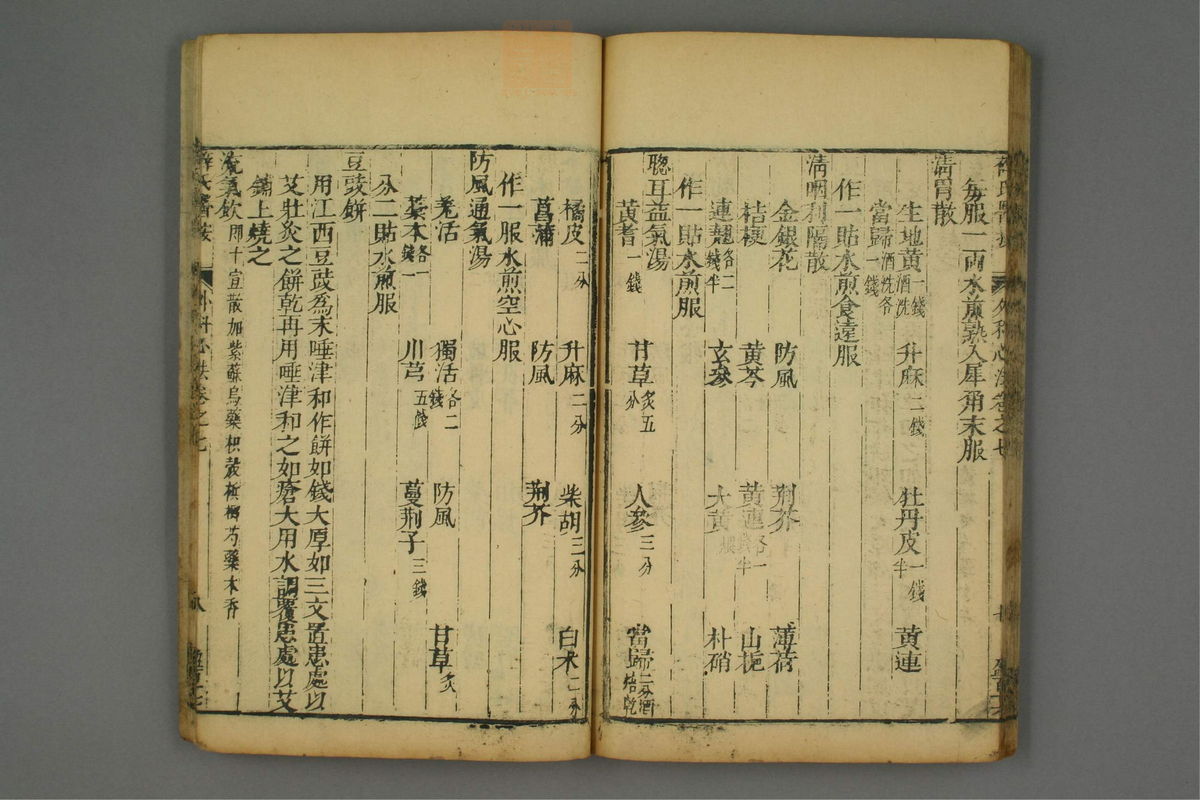 薛氏醫按 外科心法卷之七
每服一兩水煎熟入犀角末服
清胃散
生地黄一錢酒洗 升麻二錢 牡丹皮一錢半 黄連
當歸酒洗各一錢
作一貼水煎食遠服
清咽利隔散
金銀花 防風 荆芥 薄荷
桔梗 黄芩 黄連各一錢半 山梔
連翹各二錢半 玄參 大黄 朴硝
作一貼水煎服
聰耳益氣湯
黄耆一錢 甘草炙五分 人參三分 當歸二分酒焙乾
橘皮二分 升麻二分 柴胡三分 白术二分
菖蒲 防風 荆芥
作一服水煎空心服
防風通氣湯
羌活 獨活各二錢 防風 甘草炙
藁本各一錢 川芎五錢 蔓荆子三錢
分二貼水煎服
豆豉餅
用江西豆豉為末唾津和作餅如錢大厚如三文置患處以
艾壯灸之餅乾再用唾津和之如瘡大用水調覆患處以艾
鋪上燒之
流氣飲即十宣散加紫蘇烏藥枳殼檳榔芍藥木香
薛氏醫按 外科心法卷之七 八